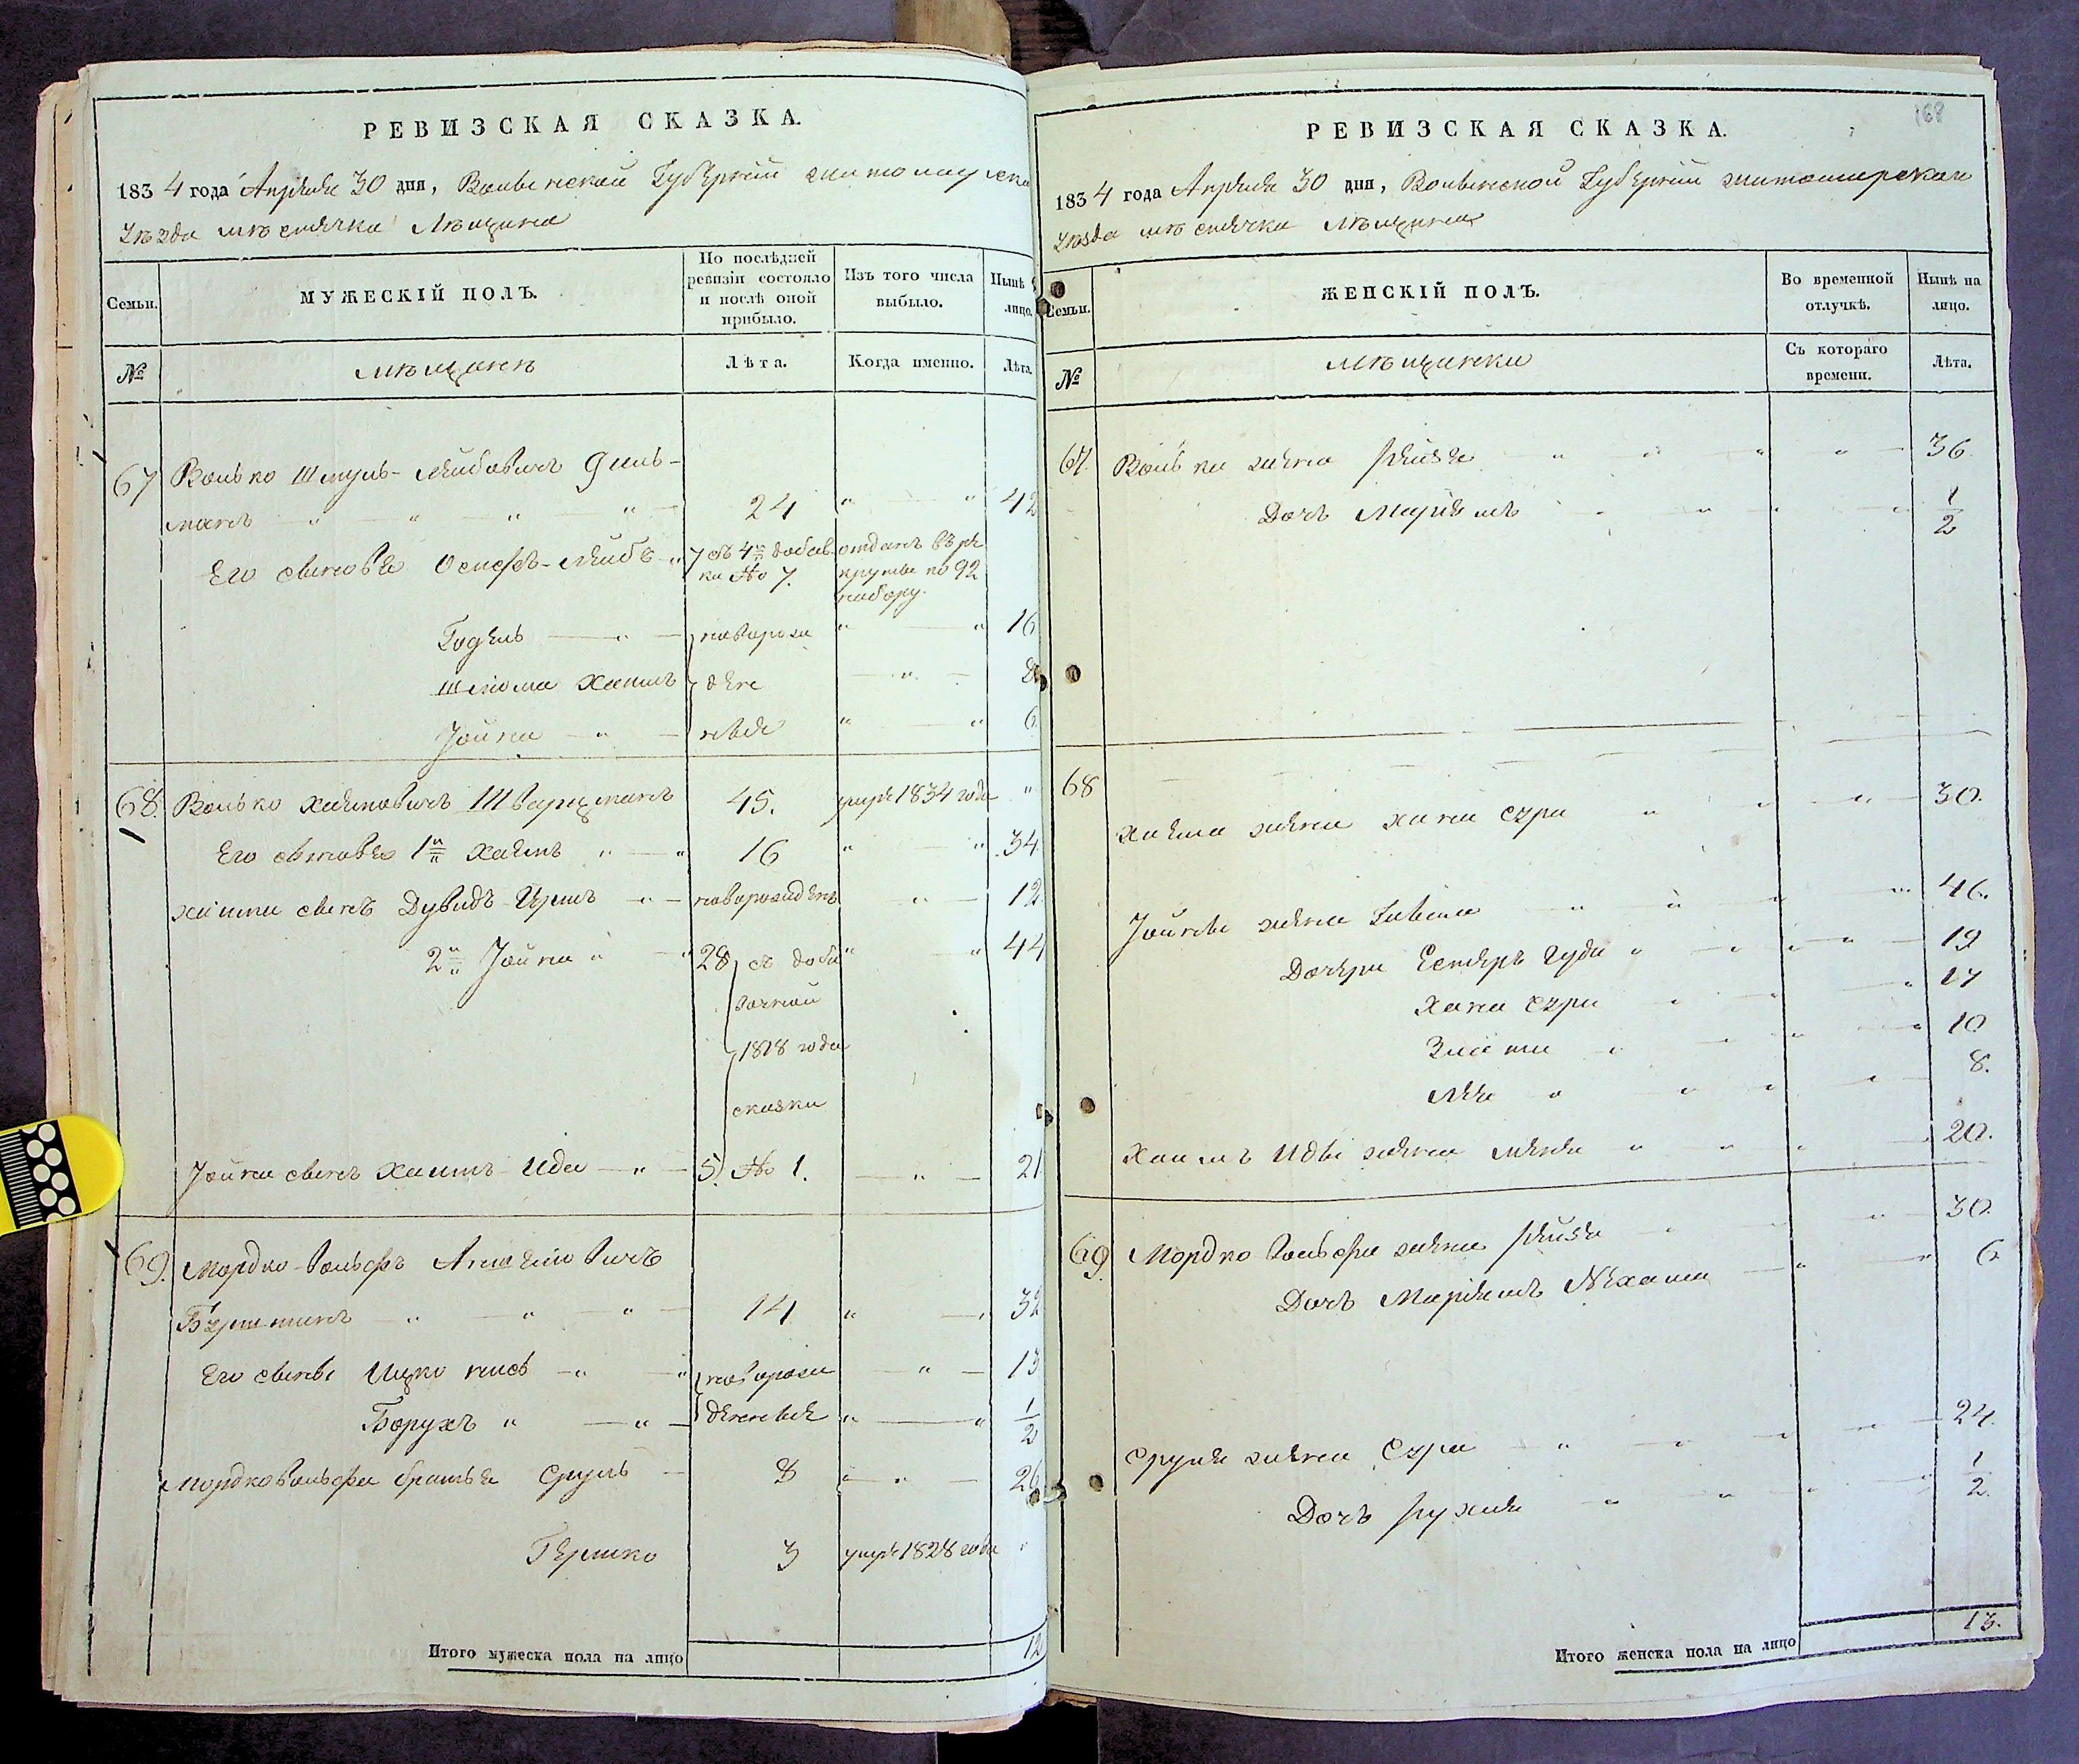 РЕВИЗСКАЯ СКАЗКА.
1834 года Апреля 30 дня, Волынской Губернiи
уезда местечка
Семьи.
МУЖЕСКIЙ ПОЛЪ.
По послѣдней ревизiи состояло и послѣ оной прибыло.
Изъ того числа выбыло.
Нынѣ
лицо.
№
мещанъ
Лѣта.
Когда именно.
Лѣта.
67 Волько Шмуль-Лейбовичъ
24 " " 42
Его сыновья Осифъ-Лейбъ " 7 съ 4й добав отданъ въ ре
ки No 7. круты по 92
набору.
" новорож " " 16
Шлiома Хаимъ ден " 8
Iойна " ные " " 6
68. Волько Хаимовичъ Шварцманъ 45. умре 1834 года "
Его сыновья 1й Хаимъ " " 16 " " 34
сынъ Дувидъ Герш " новорожденъ " 12
2й Iойна " " 28 съ доба " " 44
вочной
1818 года
сказки
Iойна сынъ Хаимъ Ида " 5. No 1. " 21
69. Мордко-Вольфъ
" " " 14 " 32
Его сыны Ицко " " новорож " 13
Борухъ " " денные " " 1/2
Мордко Вольфа братья Сруль 8 " " 26
Гершко 3 умре 1828 года "
Итого мужеска пола на лицо 12
168
РЕВИЗСКАЯ СКАЗКА.
1834 года Апреля 30 дня, Волынской Губернiи Житомирскаго
уезда местечка
Семьи.
ЖЕНСКIЙ ПОЛЪ.
Во временной отлучкѣ.
Нынѣ на лицо.
№
мещанки
Съ котораго времени.
Лѣта.
67. Вольки жена Рейзя " " " " 36
Дочь Мариемъ " " " " 1/2
68
Хаима жена Хана Сура " " " 30.
Iойны жена " " " " 46.
Дочери Естеръ " " " " 19
Хана Сура " " " 17
Злата " " " " 10
Лея " " " " 8.
Хаимъ Иды жена " " " 20.
69. Мордко Вольфа жена Рейзя " " " 30.
Дочь Марiемъ Нехама " " 6
Сруля жена Сура " " " " 24.
Дочь Рухля " " " " 1/2.
Итого женска пола на лицо 13.